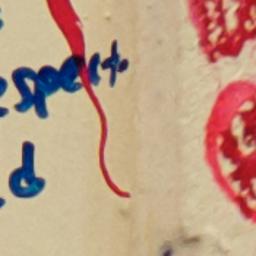 espect
d